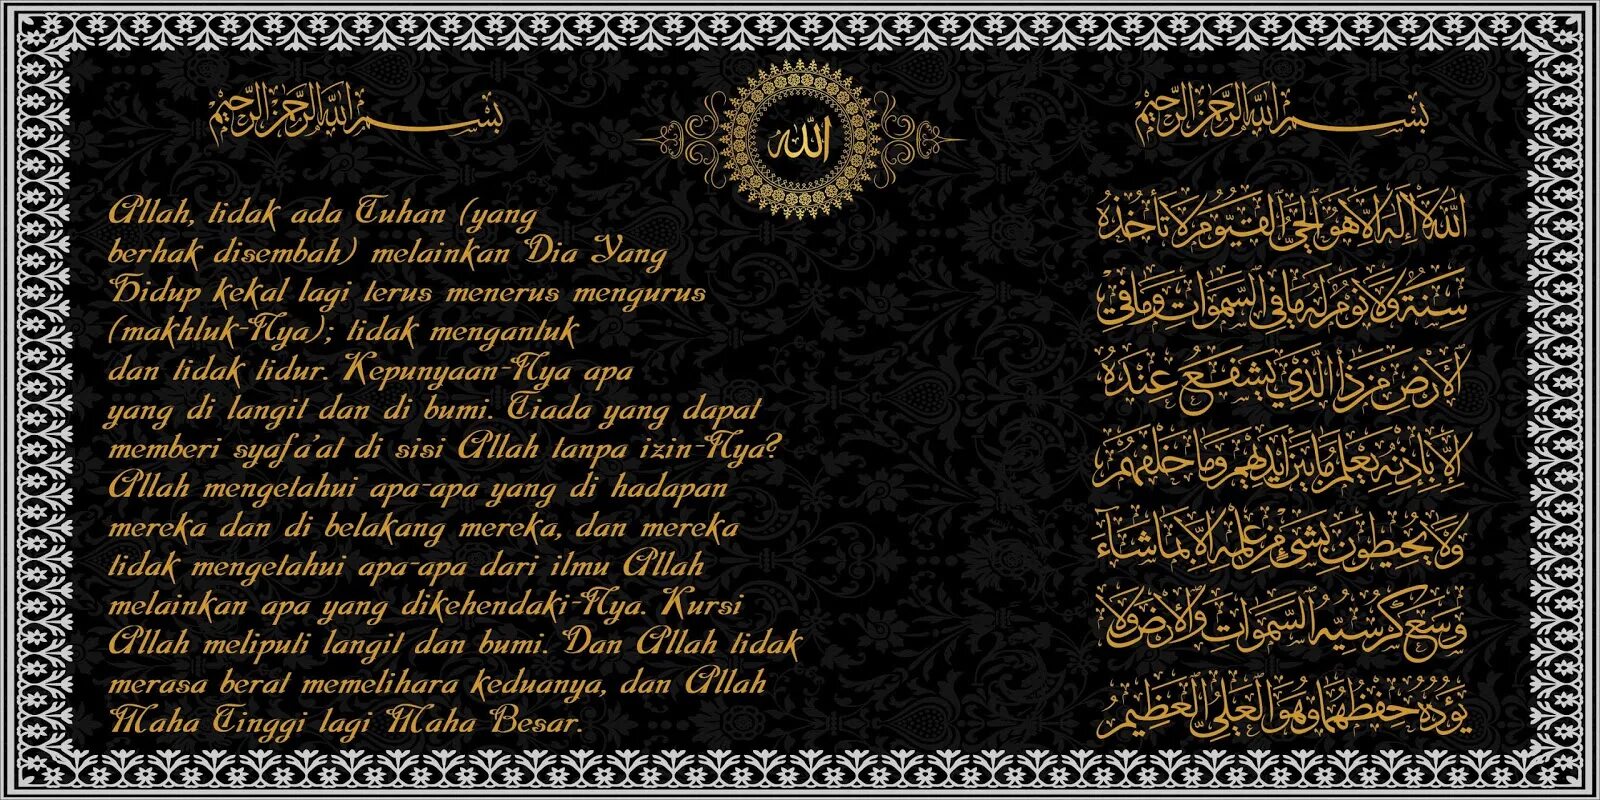 بسم الله الرحمن الرحيم
Allah, tidak ada Tuhan (yang
berhak disembah) melainkan Dia Yang
Hidup kekal lagi terus menerus mengurus
(makhluk-Nya); tidak mengantuk
dan tidak tidur. Kepunyaan-Nya apa
yang di langit dan di bumi. Tiada yang dapat
memberi syafa'at di sisi Allah tanpa izin-Nya?
Allah mengetahui apa-apa yang di hadapan
mereka dan di belakang mereka, dan mereka
tidak mengetahui apa-apa dari ilmu Allah
melainkan apa yang dikehendaki-Nya. Kursi
Allah meliputi langit dan bumi. Dan Allah tidak
merasa berat memelihara keduanya, dan Allah
Maha Tinggi lagi Maha Besar.
الله
بسم الله الرحمن الرحيم
الله لا إله إلا هو الحي القيوم لا تأخذه
سنة ولا نوم له ما في السموات وما في
الأرض من ذا الذي يشفع عنده
إلا بإذنه يعلم ما بين أيديهم وما خلفهم
ولا يحيطون بشيء من علمه إلا بما شاء
وسع كرسيه السموات والأرض ولا
يؤده حفظهما وهو العلي العظيم